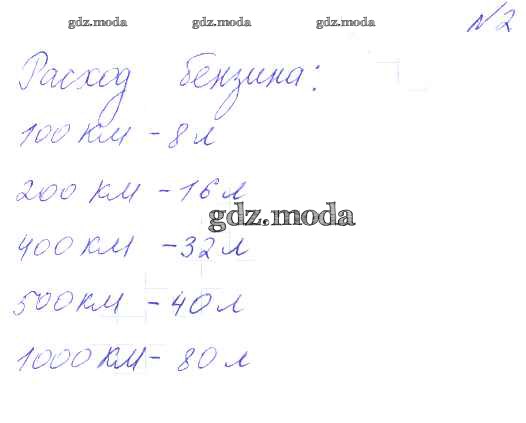 gdz.moda gdz.moda gdz.moda
№2
Расход бензина:
100 км - 8 л
200 км - 16 л
gdz.moda
400 км - 32 л
500 км - 40 л
1000 км - 80 л